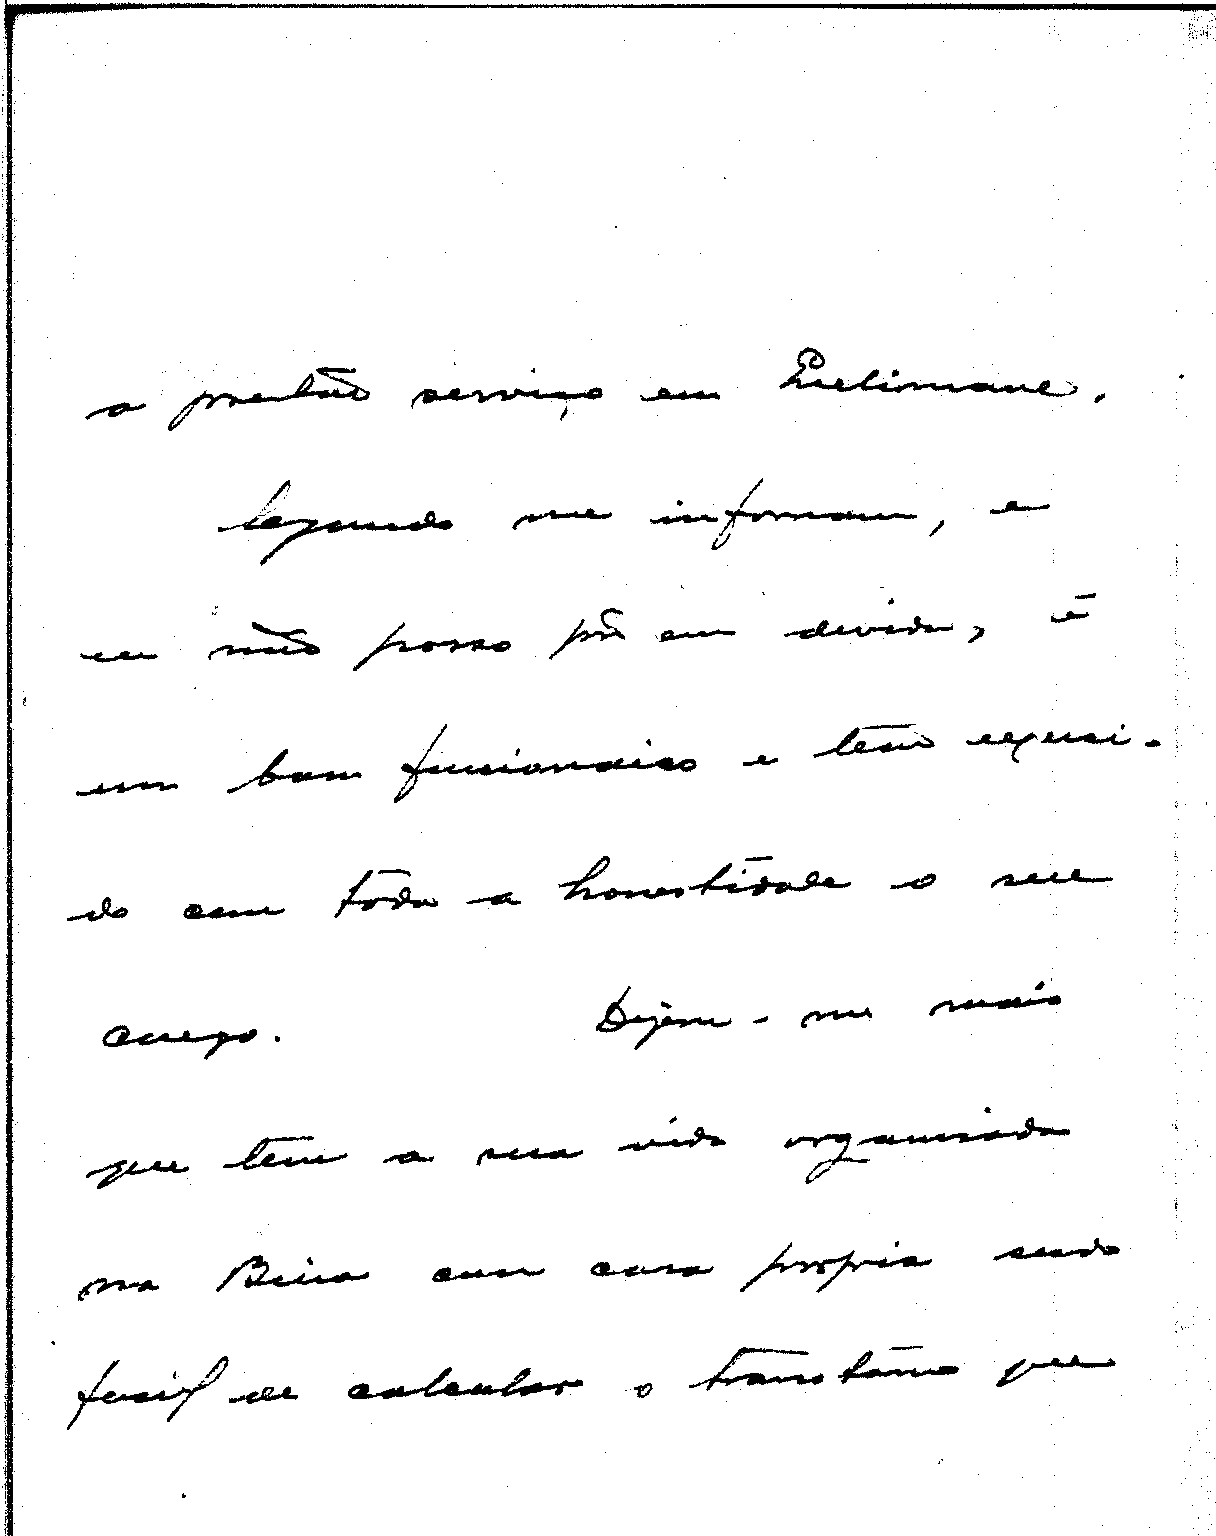 a prestar serviço em Quelimane.
Segundo me informam, e
eu não posso pôr em duvida, é
um bom funcionario e tem exerci-
do com toda a honestidade o seu
cargo. Dizem-me mais
que tem a sua vida organisada
na Beira com casa propria sendo
facil de calcular o transtorno que